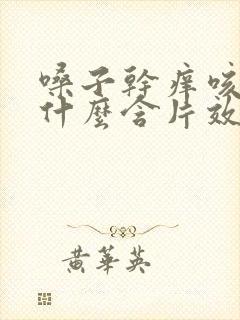 嗓子幹痒咳
什麼含片效
黄華英